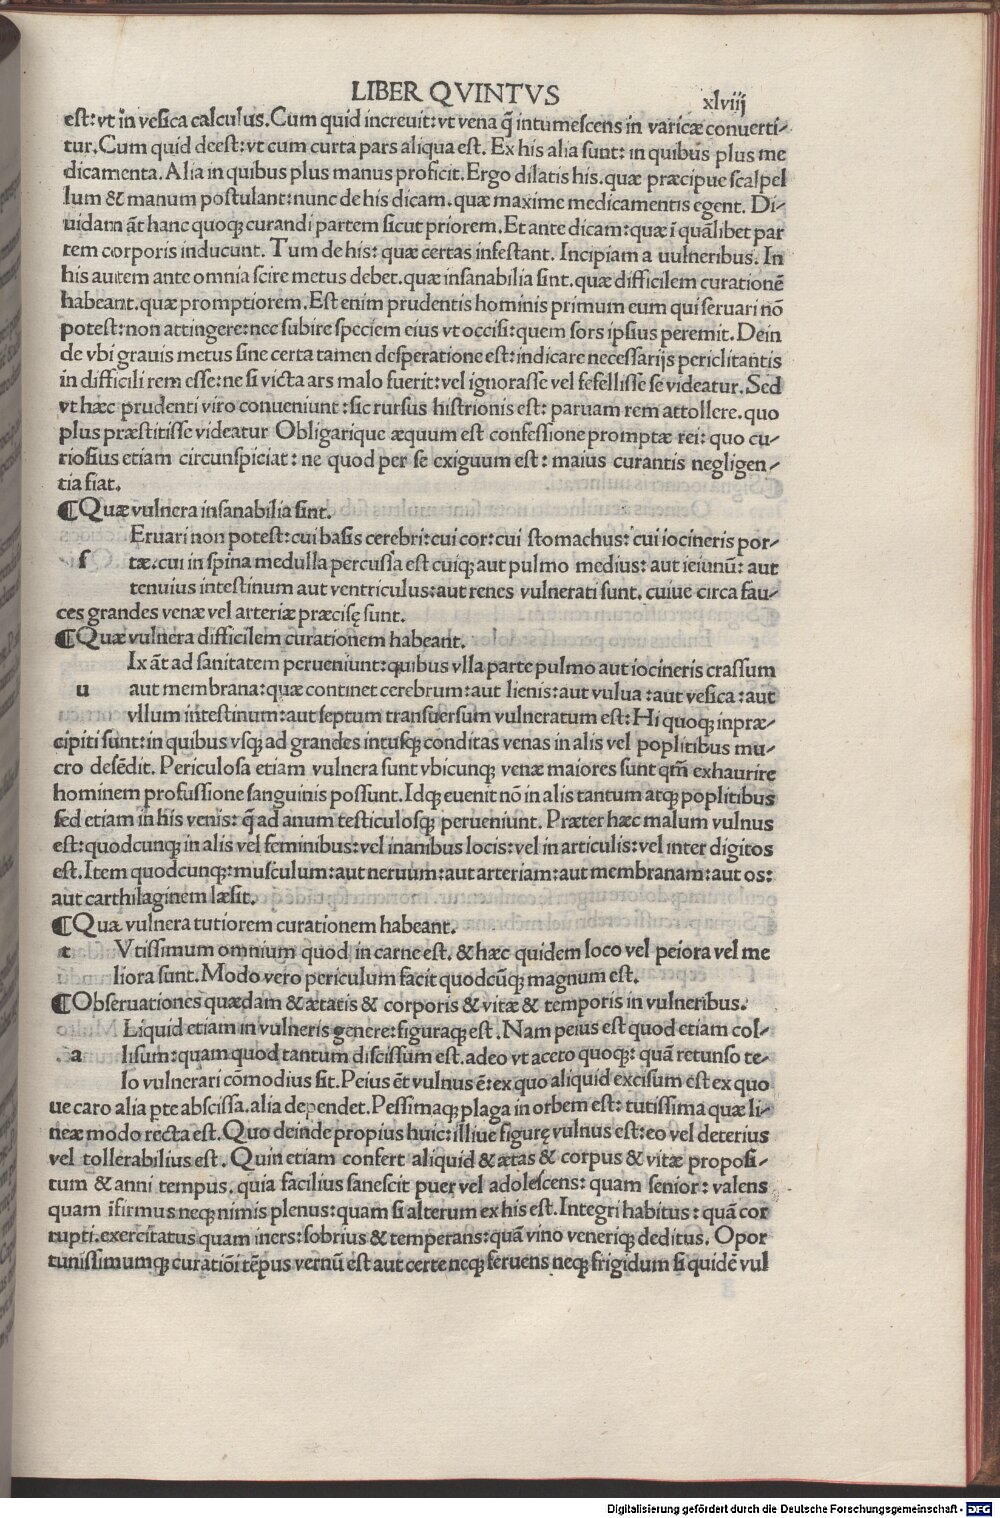 LIBER QVINTVS
xlviij
est: vt in vesica calculus. Cum quid increuit: vt vena q̃ intumescens in varicæ conuerti⸗
tur. Cum quid deest: vt cum curta pars aliqua est. Ex his alia sunt: in quibus plus me
dicamenta. Alia in quibus plus manus proficit. Ergo dilatis his. quæ præcipue scalpel
lum & manum postulant: nunc de his dicam. quæ maxime medicamentis egent. Di⸗
uidam āt hanc quoq; curandi partem sicut priorem. Et ante dicam: quæ ī quālibet par
tem corporis inducunt. Tum de his: quæ certas infestant. Incipiam a uulneribus. In
his autem ante omnia scire metus debet. quæ insanabilia sint. quæ difficilem curationē
habeant. quæ promptiorem. Est enim prudentis hominis primum eum qui seruari nō
potest: non attingere: nec subire speciem eius vt occisi: quem sors ipsius peremit. Dein
de vbi grauis metus sine certa tamen desperatione est: indicare necessarijs periclitantis
in difficili rem esse: ne si victa ars malo fuerit: vel ignorasse vel fefellisse se videatur. Sed
vt hæc prudenti viro conueniunt: sic rursus histrionis est: paruam rem attollere. quo
plus præstitisse videatur Obligarique æquum est confessione promptæ rei: quo cu⸗
riosius etiam circunspiciat: ne quod per se exiguum est: maius curantis negligen⸗
tia fiat.
¶ Quæ vulnera insanabilia sint.
Eruari non potest: cui basis cerebri: cui cor: cui stomachus: cui iocineris por⸗
s tæ. cui in spina medulla percussa est cuiq; aut pulmo medius: aut ieiunū: aut
tenuius intestinum aut ventriculus: aut renes vulnerati sunt. cuiue circa fau⸗
ces grandes venæ vel arteriæ præcisę sunt.
¶ Quæ vulnera difficilem curationem habeant.
Ix āt ad sanitatem perueniunt: quibus vlla parte pulmo aut iocineris crassum
u aut membrana: quæ continet cerebrum: aut lienis: aut vulua: aut vesica: aut
vllum intestinum: aut septum transuersum vulneratum est: Hi quoq; in præ⸗
cipiti sunt: in quibus vsq; ad grandes intusq; conditas venas in alis vel poplitibus mu⸗
cro desēdit. Periculosa etiam vulnera sunt vbicunq; venæ maiores sunt qm̄ exhaurire
hominem profussione sanguinis possunt. Idq; euenit nō in alis tantum atq; poplitibus
sed etiam in his venis: q̃ ad anum testiculosq; perueniunt. Præter hæc malum vulnus
est: quodcunq; in alis vel feminibus: vel inanibus locis: vel in articulis: vel inter digitos
est. Item quodcunq;: musculum: aut neruum: aut arteriam: aut membranam: aut os:
aut carthilaginem læsit.
¶ Quæ vulnera tutiorem curationem habeant.
t Vtissimum omnium quod in carne est. & hæc quidem loco vel peiora vel me
liora sunt. Modo vero periculum facit quodcūq; magnum est.
¶ Obseruationes quædam & ætatis & corporis & vitæ & temporis in vulneribus.
Liquid etiam in vulneris genere: figuraq; est. Nam peius est quod etiam col⸗
a lisum: quam quod tantum discissum est. adeo vt aceto quoq;: quā retunso te⸗
lo vulnerari cōmodius sit. Peius ēt vulnus ē: ex quo aliquid excisum est ex quo
ue caro alia pte abscissa. alia dependet. Pessimaq; plaga in orbem est: tutissima quæ li⸗
neæ modo recta est. Quo deinde propius huic: illiue figurę vulnus est: eo vel deterius
vel tollerabilius est. Quin etiam confert aliquid & ætas & corpus & vitæ proposi⸗
tum & anni tempus. quia facilius sanescit puer vel adolescens: quam senior: valens
quam īfirmus neq; nimis plenus: quam si alterum ex his est. Integri habitus: quā cor
rupti. exercitatus quam iners: sobrius & temperans: quā vino veneriq; deditus. Opor
tunissimumq; curatiōi tēpus vernū est aut certe neq; feruens neq; frigidum si quidē vul
Digitalisierung gefördert durch die Deutsche Forschungsgemeinschaft - DFG